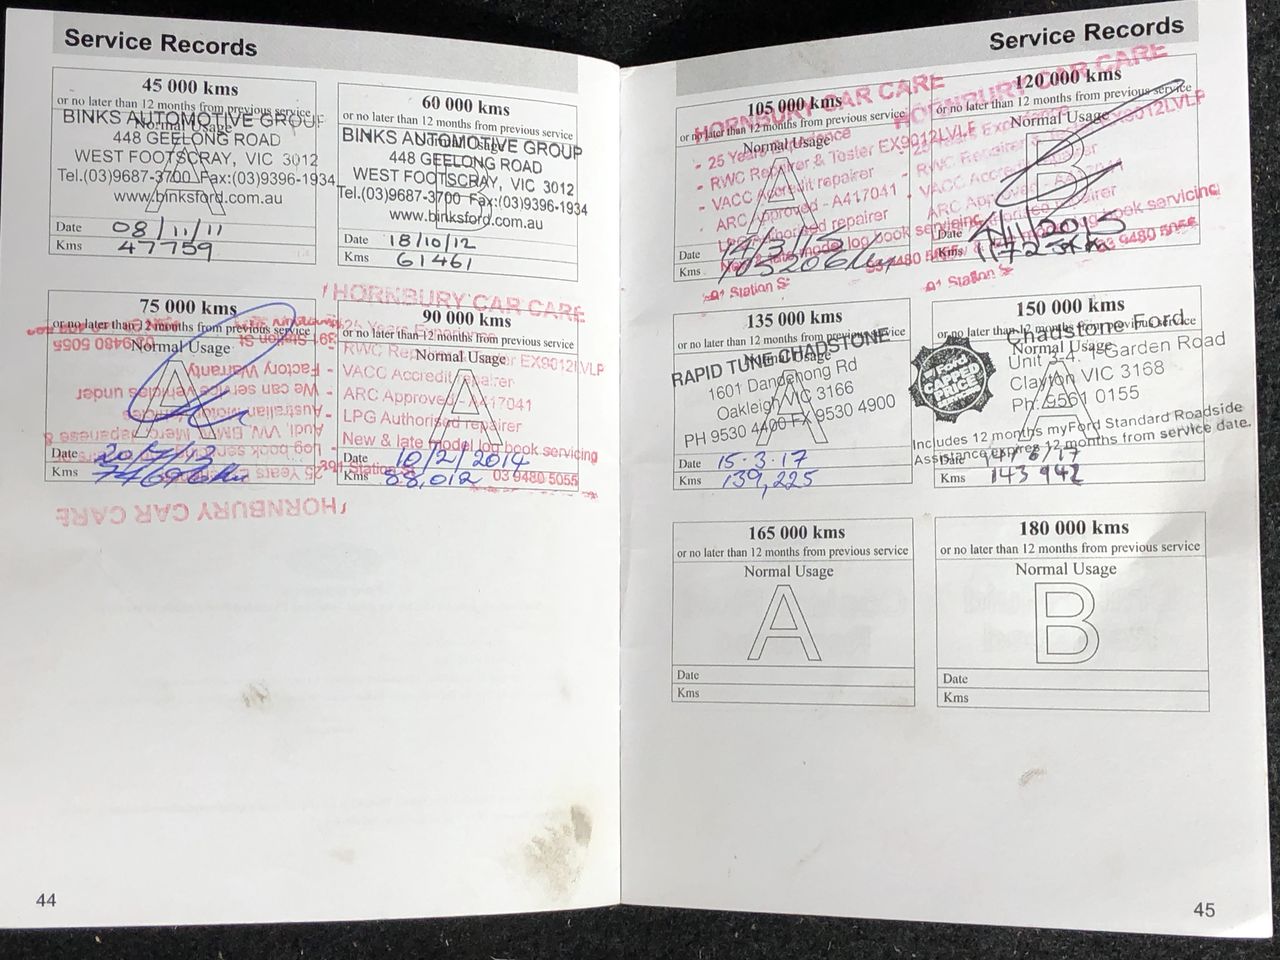 Service Records
45 000 kms
or no later than 12 months from previous service
Normal Usage
BINKS AUTOMOTIVE GROUP
448 GEELONG ROAD
WEST FOOTSCRAY, VIC 3012
Tel.(03)9687-3700 Fax:(03)9396-1934
www.binksford.com.au
A
Date 08/11/11
Kms 47759
60 000 kms
or no later than 12 months from previous service
Normal Usage
BINKS AUTOMOTIVE GROUP
448 GEELONG ROAD
WEST FOOTSCRAY, VIC 3012
Tel.(03)9687-3700 Fax:(03)9396-1934
www.binksford.com.au
B
Date 18/10/12
Kms 61461
75 000 kms
or no later than 12 months from previous service
Normal Usage
A
Date
Kms
HORNBURY CAR CARE
25 Years
- Log book
Audi, VW, BMW, Merc, Japanese &
Australian Motor Vehicles
- We can service vehicles under
- Factory Warranty
391 Station St
039480 5055
90 000 kms
or no later than 12 months from previous service
Normal Usage
A
HORNBURY CAR CARE
25 Years Experience
RWC Repairer & Tester EX9012LVLP
VACC Accredit repairer
ARC Approved - A417041
LPG Authorised repairer
New & late model log book servicing
391 Station St
03 9480 5055
Date 10/2/2014
Kms 88,012
44
Service Records
105 000 kms
or no later than 12 months from previous service
Normal Usage
A
HORNBURY CAR CARE
- 25 Years Experience
- RWC Repairer & Tester EX9012LVLP
- VACC Accredit repairer
- ARC Approved - A417041
LPG Authorised repairer
New & late model log book servicing
Station St
03 9480 5055
Date
Kms
120 000 kms
or no later than 12 months from previous service
Normal Usage
B
HORNBURY CAR CARE
- 25 Years Experience
- RWC Repairer & Tester EX9012LVLP
- VACC Accredit repairer
ARC Approved - A417041
repairer
New & late model log book servicing
Station St
03 9480 5055
Date
Kms
135 000 kms
or no later than 12 months from previous service
Normal Usage
A
RAPID TUNE CHADSTONE
1601 Dandenong Rd
Oakleigh VIC 3166
PH 9530 4400 FX 9530 4900
Date 15·3·17
Kms 139,225
150 000 kms
or no later than 12 months from previous service
Normal Usage
A
Chadstone Ford
Unit 3-4, Garden Road
Clayton VIC 3168
Ph. 9561 0155
FORD CAPPED PRICE
Includes 12 months myFord Standard Roadside
Assistance, expires 12 months from service date.
Date
Kms 143942
165 000 kms
or no later than 12 months from previous service
Normal Usage
A
Date
Kms
180 000 kms
or no later than 12 months from previous service
Normal Usage
B
Date
Kms
45